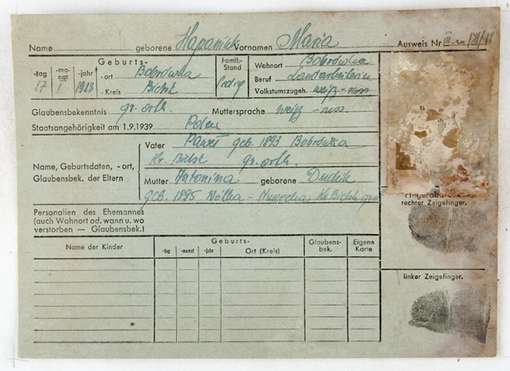 Name geborene Hapaniuk Vornamen Maria Ausweis Nr
Geburts- Famil.- Stand Wohnort Bobrówka
-tag -mo-nat -jahr -ort Bobrówka ledig Beruf Landarbeiterin
17 1 1923 - Kreis Bielsk Volkstumszugeh. weiß-russ
Glaubensbekenntnis gr. orth. Muttersprache weiß-russ.
Staatsangehörigkeit am 1.9.1939 Polen
Vater Pawel geb. 1893 Bobrówka
Kr. Bielsk gr. orth.
Name, Geburtsdaten, - ort,
Glaubensbek. der Eltern
Mutter Antonina geborene Dudik
geb. 1895 Kr. Bielsk
rechter Zeigefinger.
Personalien des Ehemannes
(auch Wohnort od. wann u. wo
verstorben — Glaubensbek.)
Name der Kinder Geburts- Glaubens-bek. Eigene Karte
-tag -monat -jahr Ort (Kreis)
linker Zeigefinger.